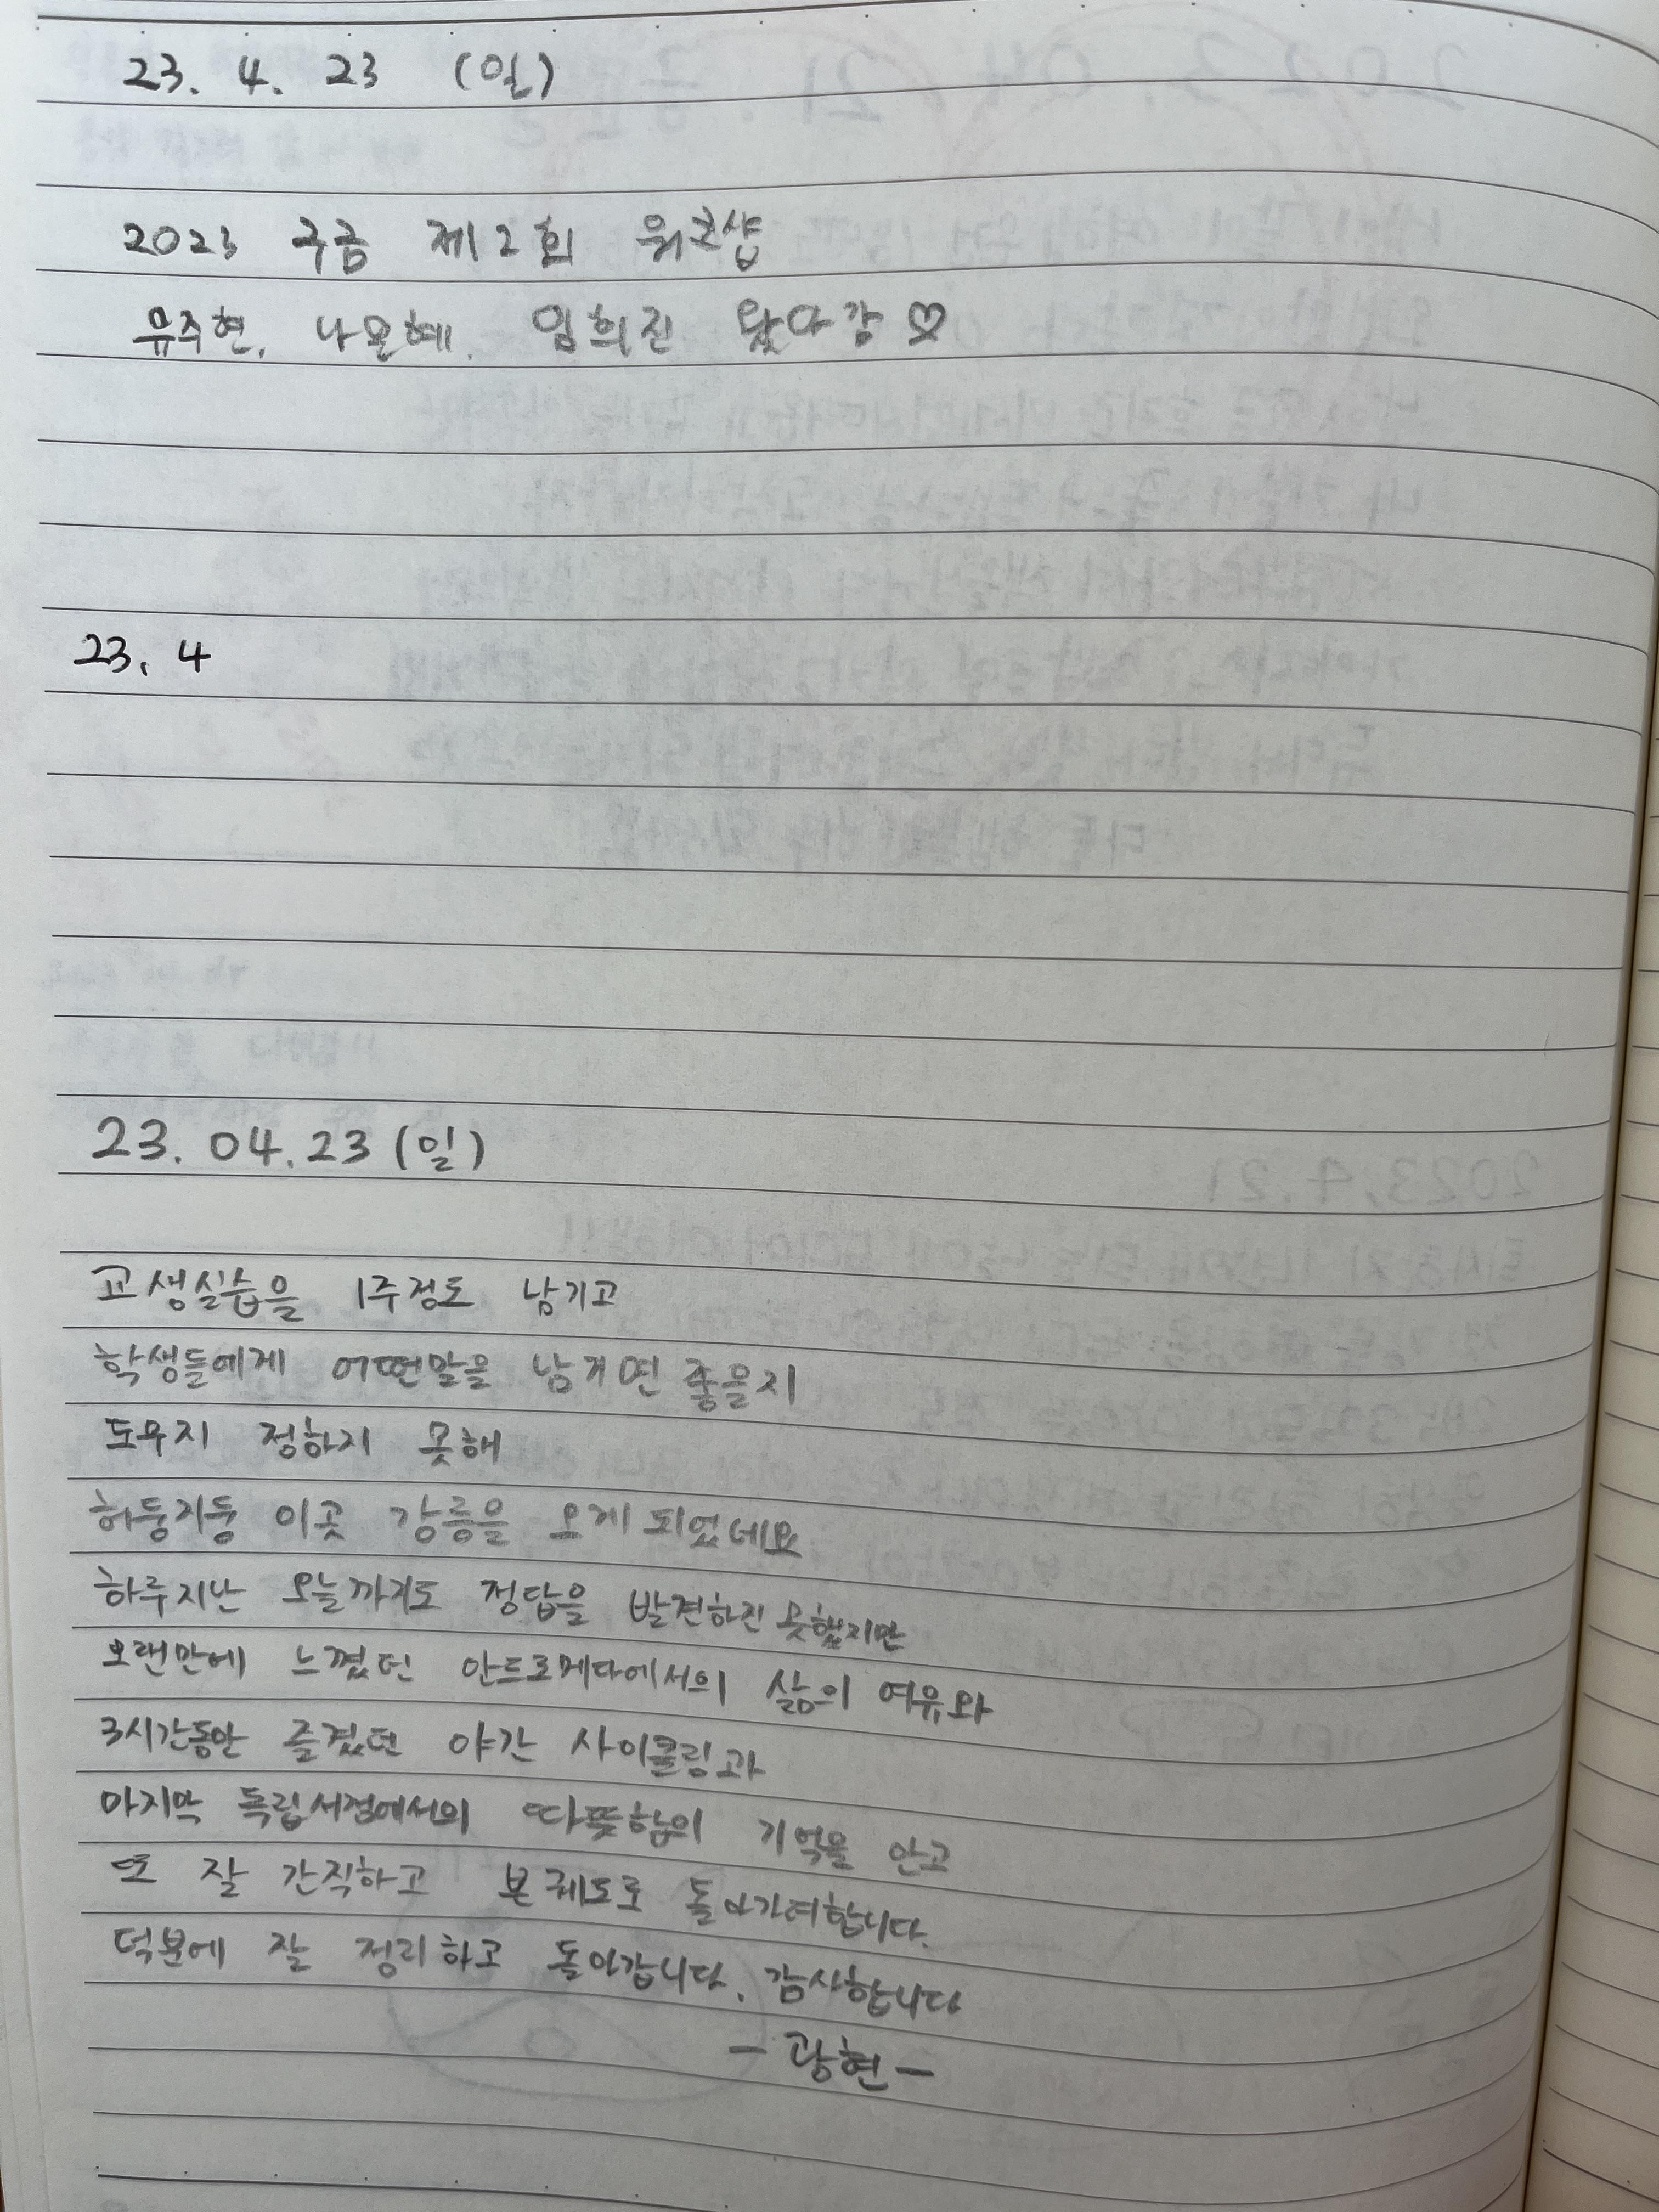 23. 4. 23 (일)
2023 구금 제2회 워크샵
유주현, 나은혜, 임희진 왔다감 ♡
23. 4
23. 04. 23 (일)
교생실습을 1주정도 남기고
학생들에게 어떤말을 남기면 좋을지
도무지 정하지 못해
허둥지둥 이곳 강릉을 오게 되었네요
하루지난 오늘까지도 정답을 발견하진 못했지만
오랜만에 느꼈던 안드로메다에서의 삶의 여유와
3시간동안 즐겼던 야간 사이클링과
마지막 독립서점에서의 따뜻함의 기억을 안고
또 잘 간직하고 본궤도로 돌아가려합니다.
덕분에 잘 정리하고 돌아갑니다. 감사합니다
- 광현 -